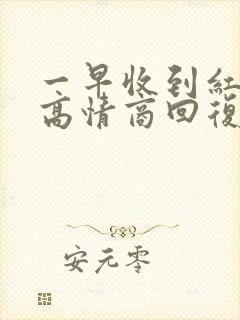 一早收到紅
高情商回復
安元零